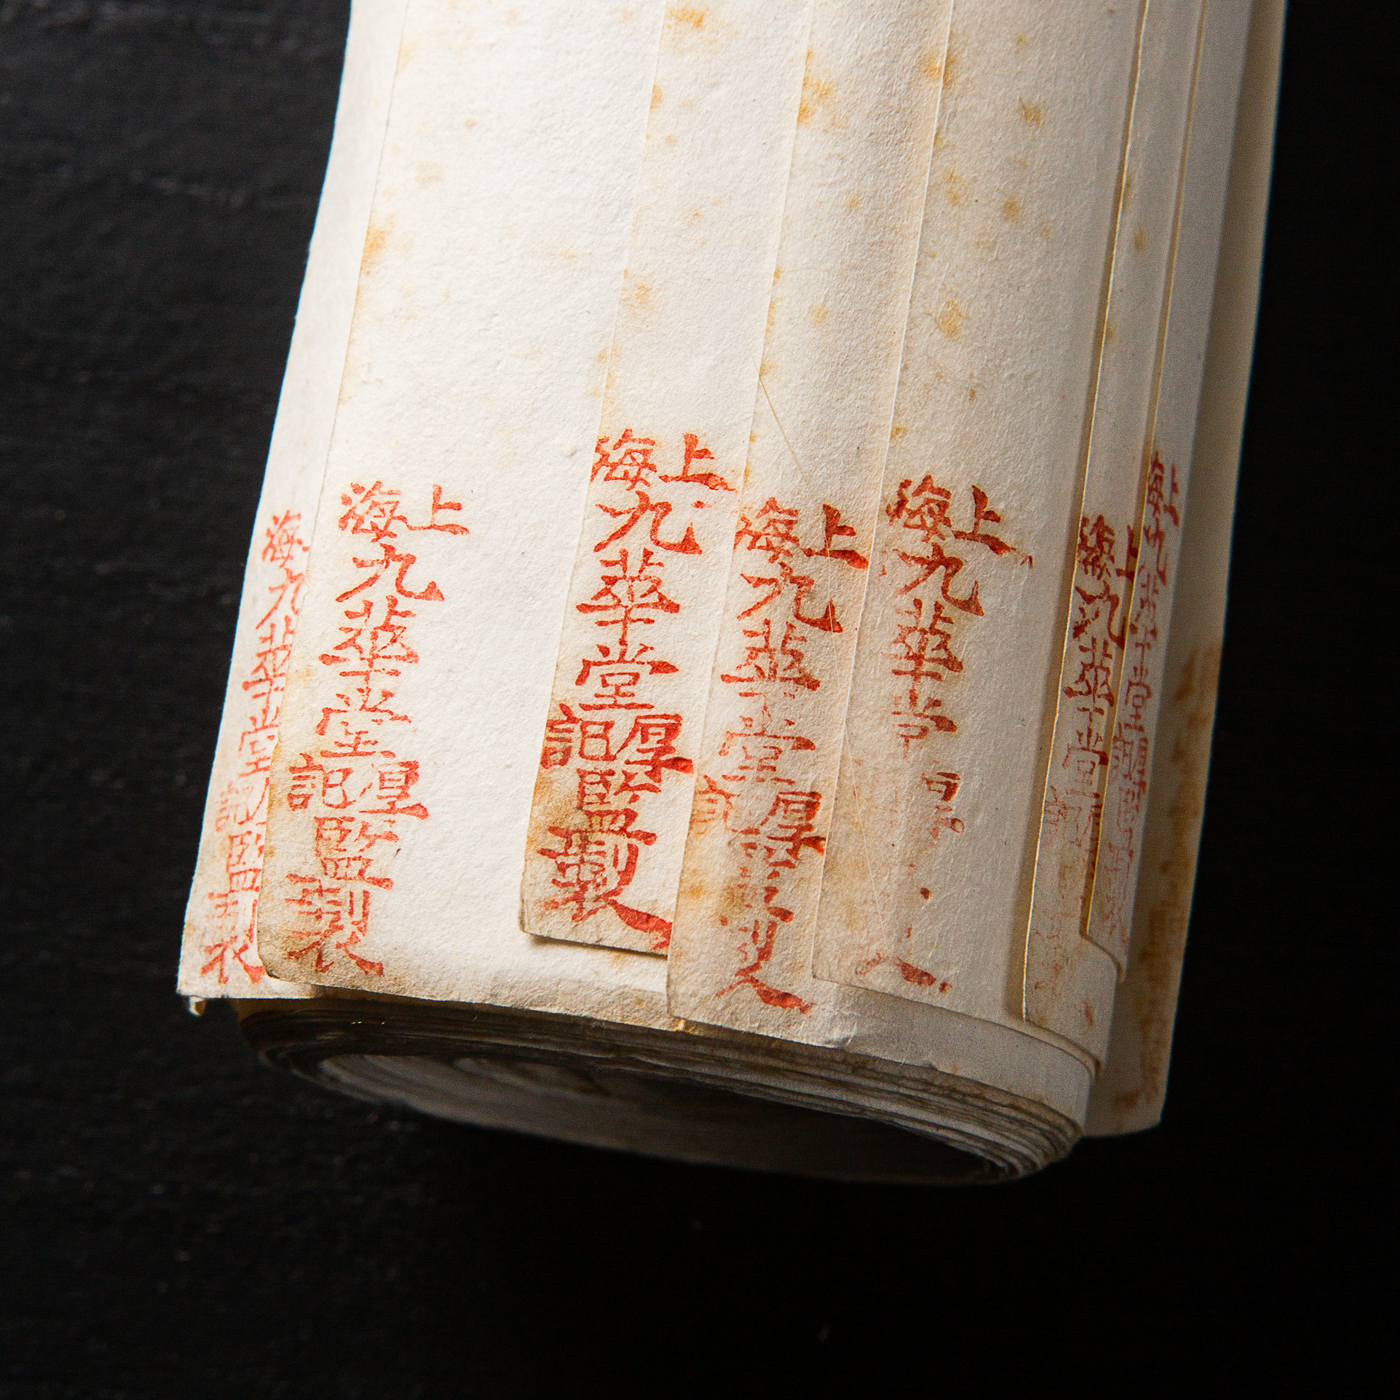 上海九華堂
上海九華堂
上海九華堂厚
上海九華堂厚記監製
上海九華堂厚記監製
上海九華堂厚記監製
海九華堂記監製